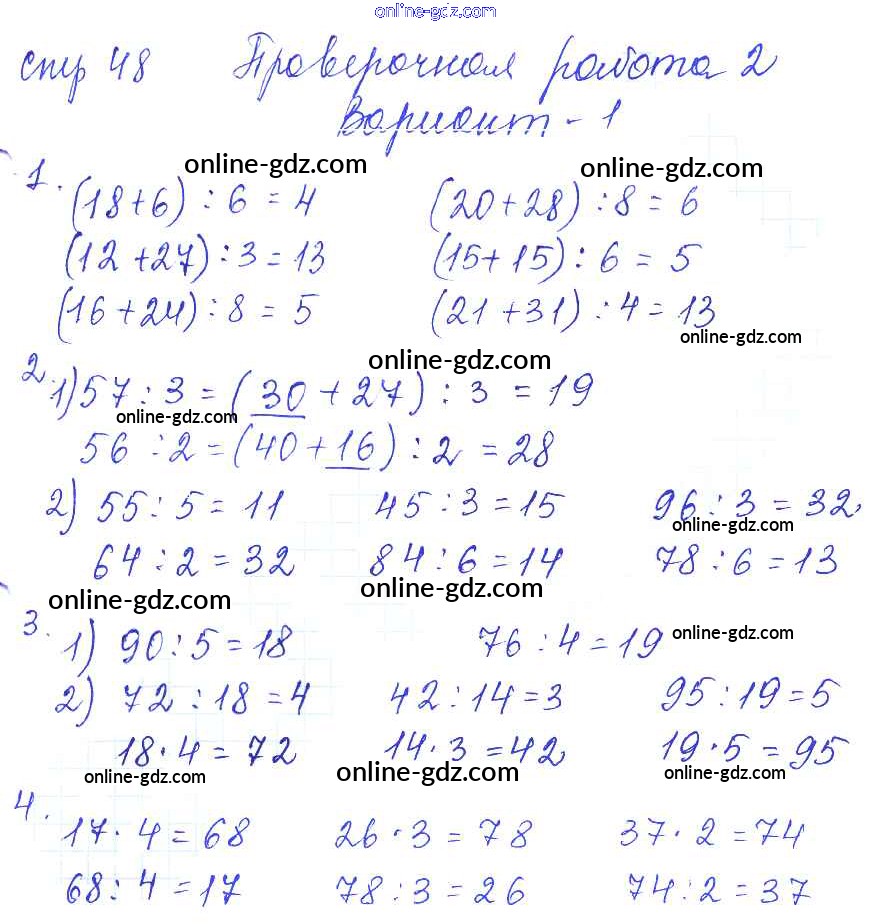 online-gdz.com
стр 48 Проверочная работа 2
Вариант - 1
online-gdz.com online-gdz.com
1. (18+6) : 6 = 4 (20+28) : 8 = 6
(12+27) : 3 = 13 (15+15) : 6 = 5
(16+24) : 8 = 5 (21+31) : 4 = 13
online-gdz.com
online-gdz.com
2. 1) 57 : 3 = (30 + 27) : 3 = 19
online-gdz.com
56 : 2 = (40+16) : 2 = 28
2) 55 : 5 = 11 45 : 3 = 15 96 : 3 = 32
online-gdz.com
64 : 2 = 32 84 : 6 = 14 78 : 6 = 13
online-gdz.com online-gdz.com
3. 1) 90 : 5 = 18 76 : 4 = 19 online-gdz.com
2) 72 : 18 = 4 42 : 14 = 3 95 : 19 = 5
18 · 4 = 72 14 · 3 = 42 19 · 5 = 95
online-gdz.com online-gdz.com online-gdz.com
4. 17 · 4 = 68 26 · 3 = 78 37 · 2 = 74
68 : 4 = 17 78 : 3 = 26 74 : 2 = 37